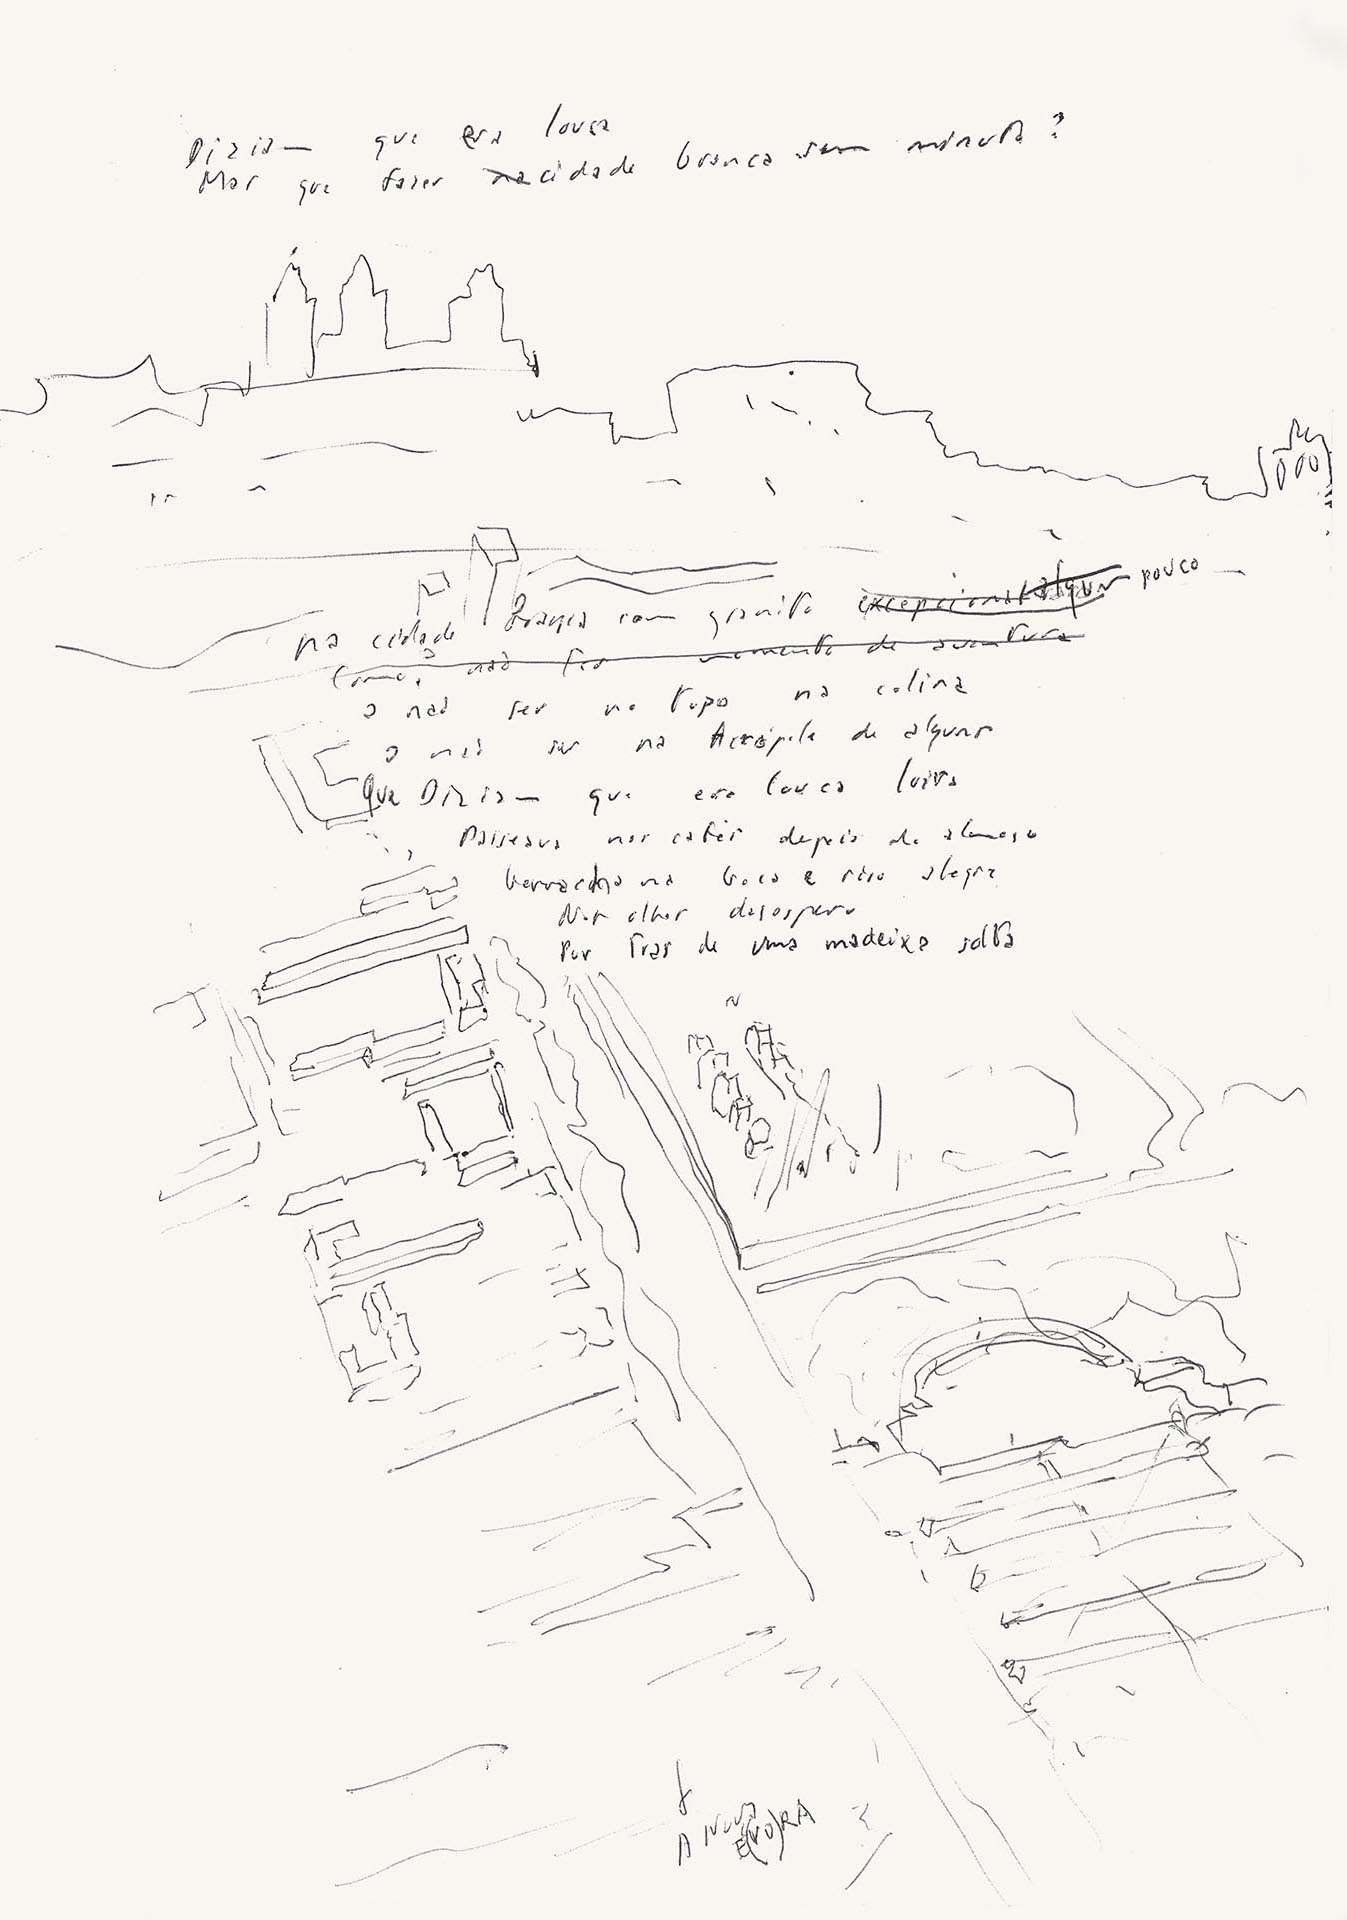 Diziam que era louca
Mas que fazer na cidade branca sem minuta?
na cidade branca com granito excepcional algum pouco
como, não foi momento de aventura
a não ser no topo na colina
a não ser na Acrópole de alguns
Que Diziam que era louca loira
Passeava nos cafés depois do almoço
na boca e riso alegre
Nos olhos desespero
Por tras de uma madeixa solta
N
A NOVA
E(VO)RA